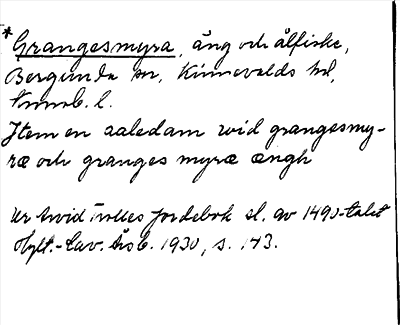 *Grangesmyra, äng och ålfiske,
Bergunda sn, Kinnevalds hd,
Kronob. l.
Item en aaledam wid grangesmy-
ræ och granges myræ ængh
Ur Arvid Trolles jordebok sl. av 1490-talet
Hylt.-Cav. Årsb. 1930, s. 143.